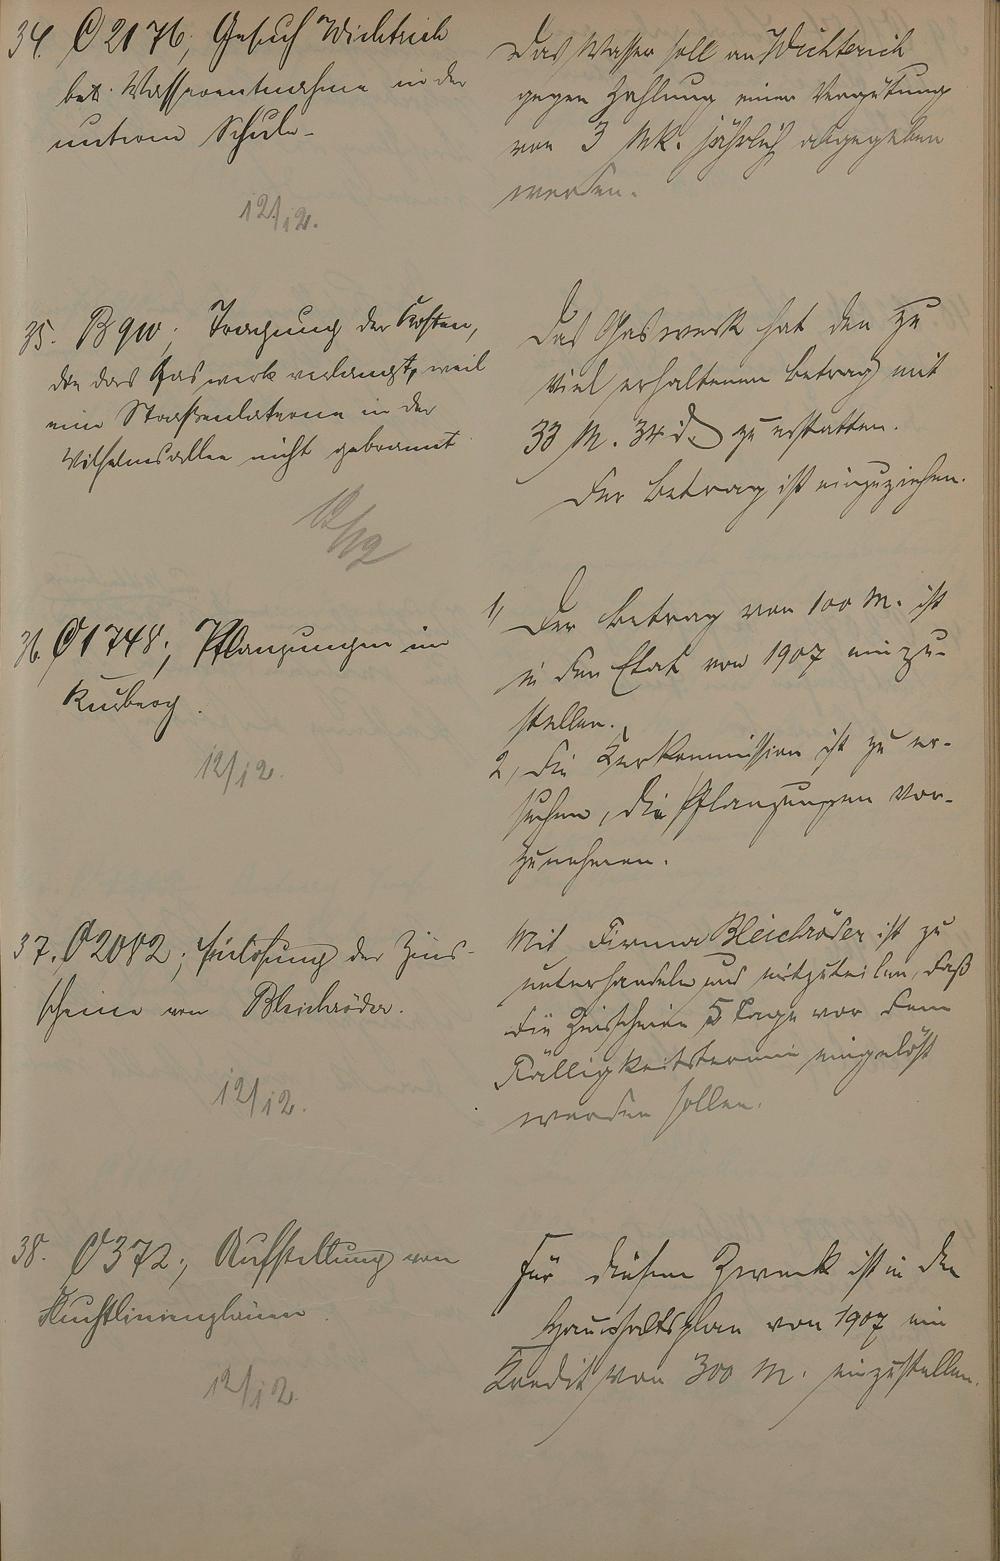 34. C 2176; Gesuch Wichterich
betr. Wasserentnahme in der
unteren Schule.
12/12.
Das Wasser soll an Wichterich
gegen Zahlung einer Vergütung
von 3 Mk. jährlich abgegeben
werden.
35. B 910. Tragung der Kosten,
die das Gaswerk verlangt, weil
eine Straßenlaterne in der
Wilhelmsallee nicht gebrannt
12/12
Das Gaswerk hat den zu
viel erhaltenen Betrag mit
33 M. 34 d. zu erstatten.
Der Betrag ist einzuziehen.
36. C 1748; Pflanzungen im
Kurberg.
12/12.
1, Der Betrag von 100 M. ist
in den Etat von 1907 einzu-
stellen.
2, Die Kurkommission ist zu er-
suchen, die Pflanzungen vor-
zunehmen.
37. C 2082; Einlösung der Zins-
scheine von Bleichröder.
12/12.
Mit Firma Bleichröder ist zu
unterhandeln und mitzuteilen, daß
die Zinsscheine 5 Tage vor dem
Fälligkeitstermin eingelöst
werden sollen.
38. C 372; Aufstellung von
Fluchtlinienplänen.
12/12.
Für diesen Zweck ist in den
Haushaltsplan von 1907 ein
Kredit von 300 M. einzustellen.